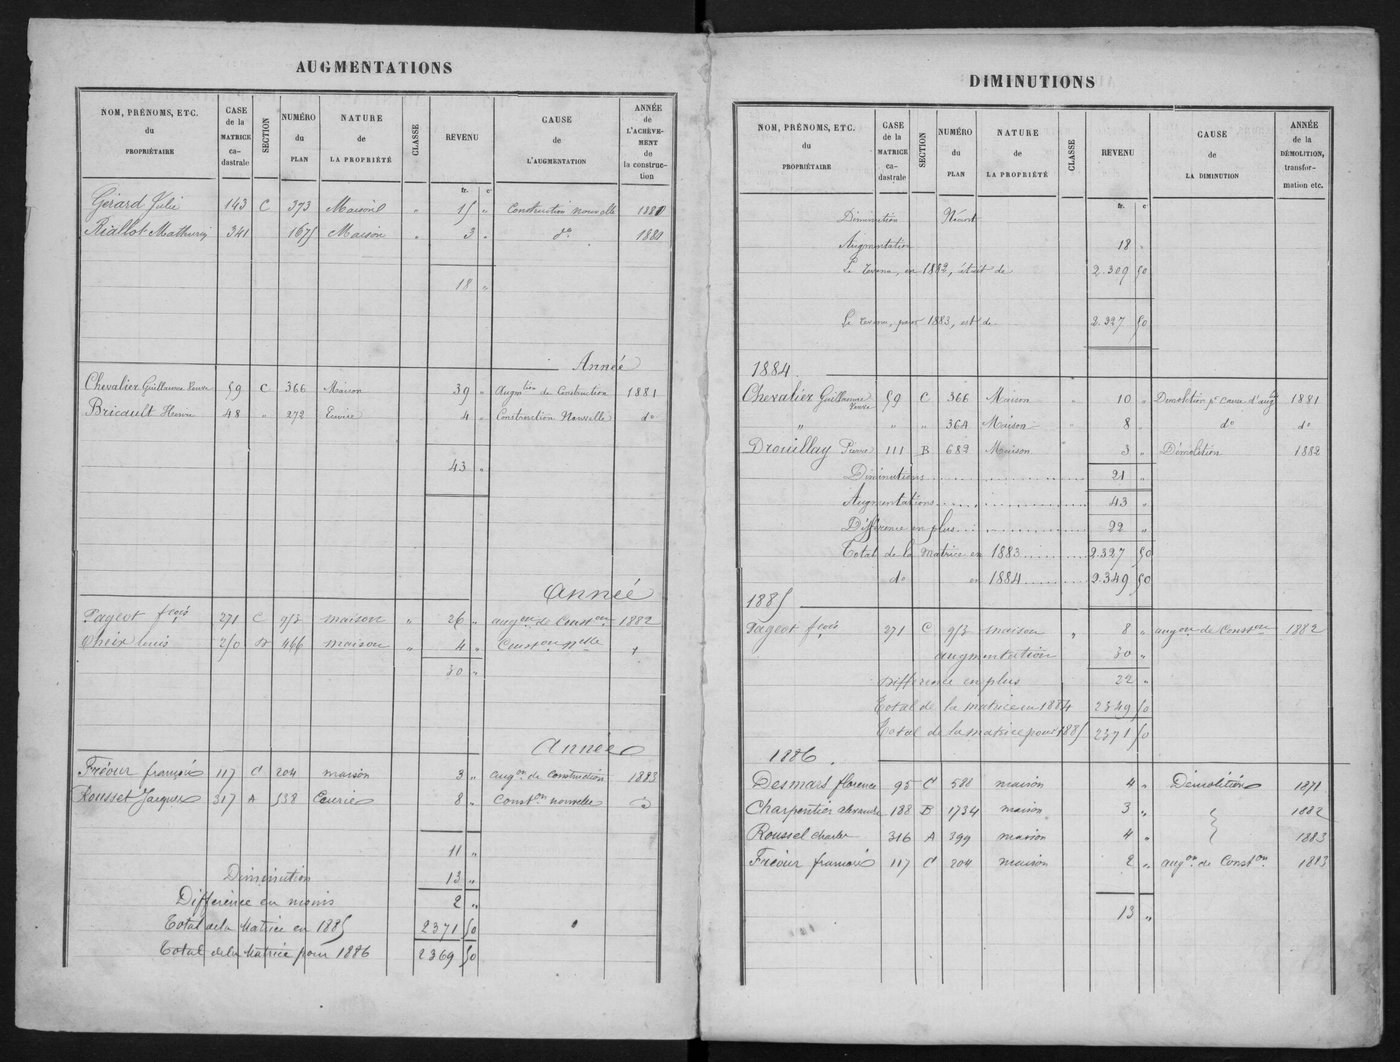 AUGMENTATIONS
NOM, PRÉNOMS, ETC. du PROPRIÉTAIRE | CASE de la MATRICE ca-dastrale | SECTION | NUMÉRO du PLAN | NATURE de LA PROPRIÉTÉ | CLASSE | REVENU | CAUSE de L'AUGMENTATION | ANNÉE de L'ACHÈVE-MENT de la construc-tion
fr. c.
Gérard Julie 143 C 373 Maison " 15 " Construction nouvelle 1880
Riallot Mathurin 341 1675 Maison " 3 " do 1880
18 "
Année
Chevalier Guillaume Veuve 59 C 366 Maison 39 " Augmtion de Construction 1881
Bricault Henri 48 " 272 4 " Construction Nouvelle do
43 "
Année
Pageot fçois 271 C 953 maison " 26 " augon de Conston 1882
Louis 250 466 maison " 4 " Conston Nlle
30 "
Année
Fréour françois 117 C 204 maison 3 " augon de Construction 1883
Rousset Jacques 317 A 538 8 " Conston nouvelle
11 "
Diminution 13 "
Différence en moins 2 "
Total de la Matrice en 1885 2371 50
Total de la Matrice pour 1886 2369 50
DIMINUTIONS
NOM, PRÉNOMS, ETC. du PROPRIÉTAIRE | CASE de la MATRICE ca-dastrale | SECTION | NUMÉRO du PLAN | NATURE de LA PROPRIÉTÉ | CLASSE | REVENU | CAUSE de LA DIMINUTION | ANNÉE de la DÉMOLITION, transfor-mation etc.
fr. c.
Diminution Néant
Augmentation 18 "
Le revenu, en 1882, était de 2.309 50
Le revenu, pour 1883, est de 2.327 50
1884
Chevalier Guillaume Veuve 59 C 366 Maison " 10 " Démolition pr cause d'augon 1881
" " " 364 Maison " 8 " do do
Drouillay Pierre 111 B 682 Maison 3 " Démolition 1882
Diminutions 21 "
Augmentations 43 "
Différence en plus 22 "
Total de la matrice en 1883 2.327 50
do en 1884 2.349 50
1885
Pageot fçois 271 C 953 maison " 8 " augon de Conston 1882
augmentation 30 "
Différence en plus 22 "
Total de la matrice en 1884 2349 50
Total de la matrice pour 1885 2371 50
1886
Desmars florence 95 C 588 maison 4 " Démolition 1871
Charpentier alexandre 188 B 1734 maison 3 " 1882
Roussel Charles 316 A 399 maison 4 " 1883
Fréour françois 117 C 204 maison 2 " augon de Conston 1883
13 "